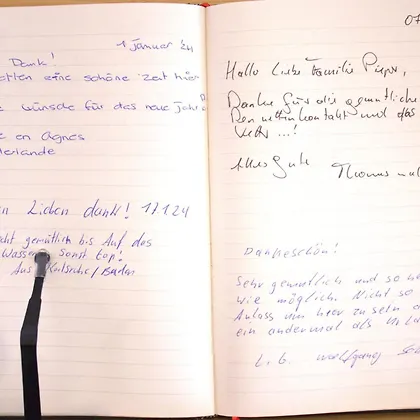 Dank!
1 Januar 24
eine schöne Zeit hier
wünsche für das neue Jahr
en Agnes
derlande
Lieben dank! 17.1.24
gemütlich bis Auf das
Wasser Sonst top!
Aus Karlsruhe/Baden
07
Hallo Liebe Familie Pieper,
Danke für die gemütliche
Den netten Kontakt und das
...!
Alles Gute
Thomas
Dankeschön!
Sehr gemütlich und so
wie möglich. Nicht so
Anlass um hier zu sein
ein andermal als Urla
L. G. Wolfgang